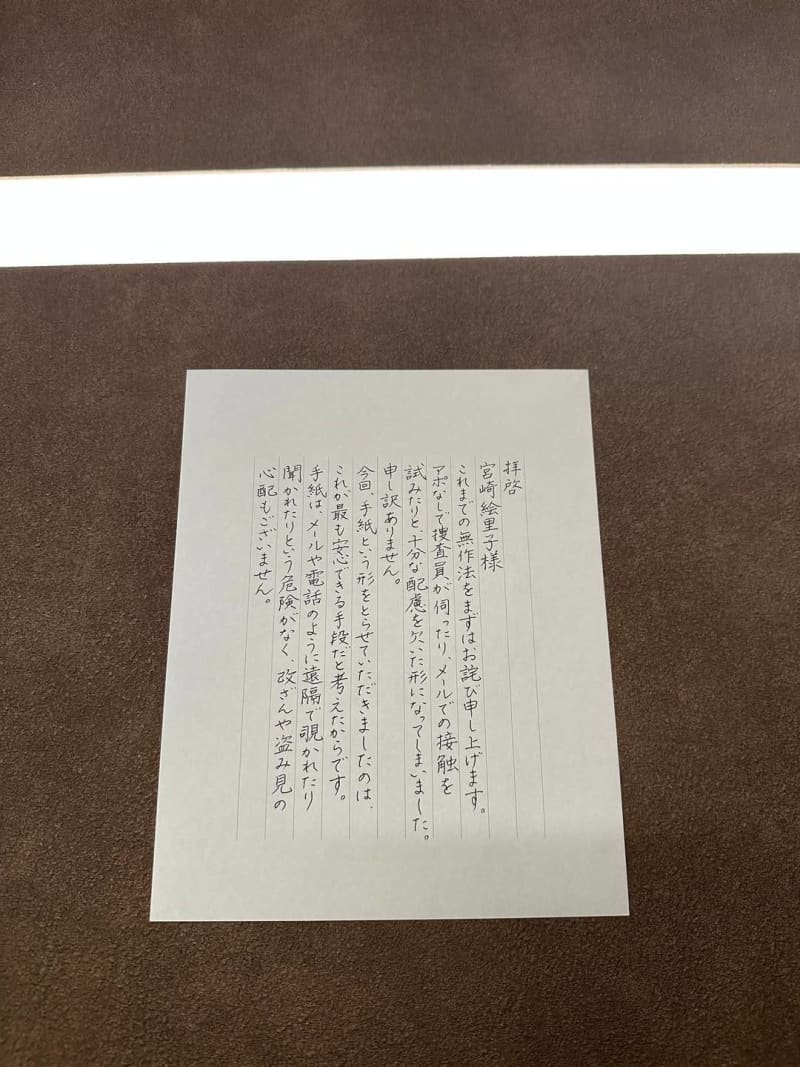 拝啓
宮崎絵里子様
これまでの無作法をまずはお詫び申し上げます。
アポなしで捜査員が伺ったり、メールでの接触を
試みたりと、十分な配慮を欠いた形になってしまいました。
申し訳ありません。
今回、手紙という形をとらせていただきましたのは、
これが最も安心できる手段だと考えたからです。
手紙は、メールや電話のように遠隔で覗かれたり
聞かれたりという危険がなく、改ざんや盗み見の
心配もございません。